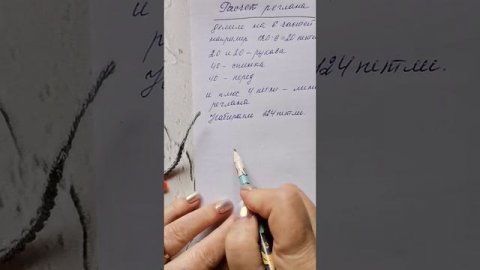 Расчёт реглана
делим на 6 частей
например 120:6=20 петель
20 и 20 - рукава
40 - спинка
40 - перед
и плюс 4 петли - линии
реглана
Набираем 124 петли.